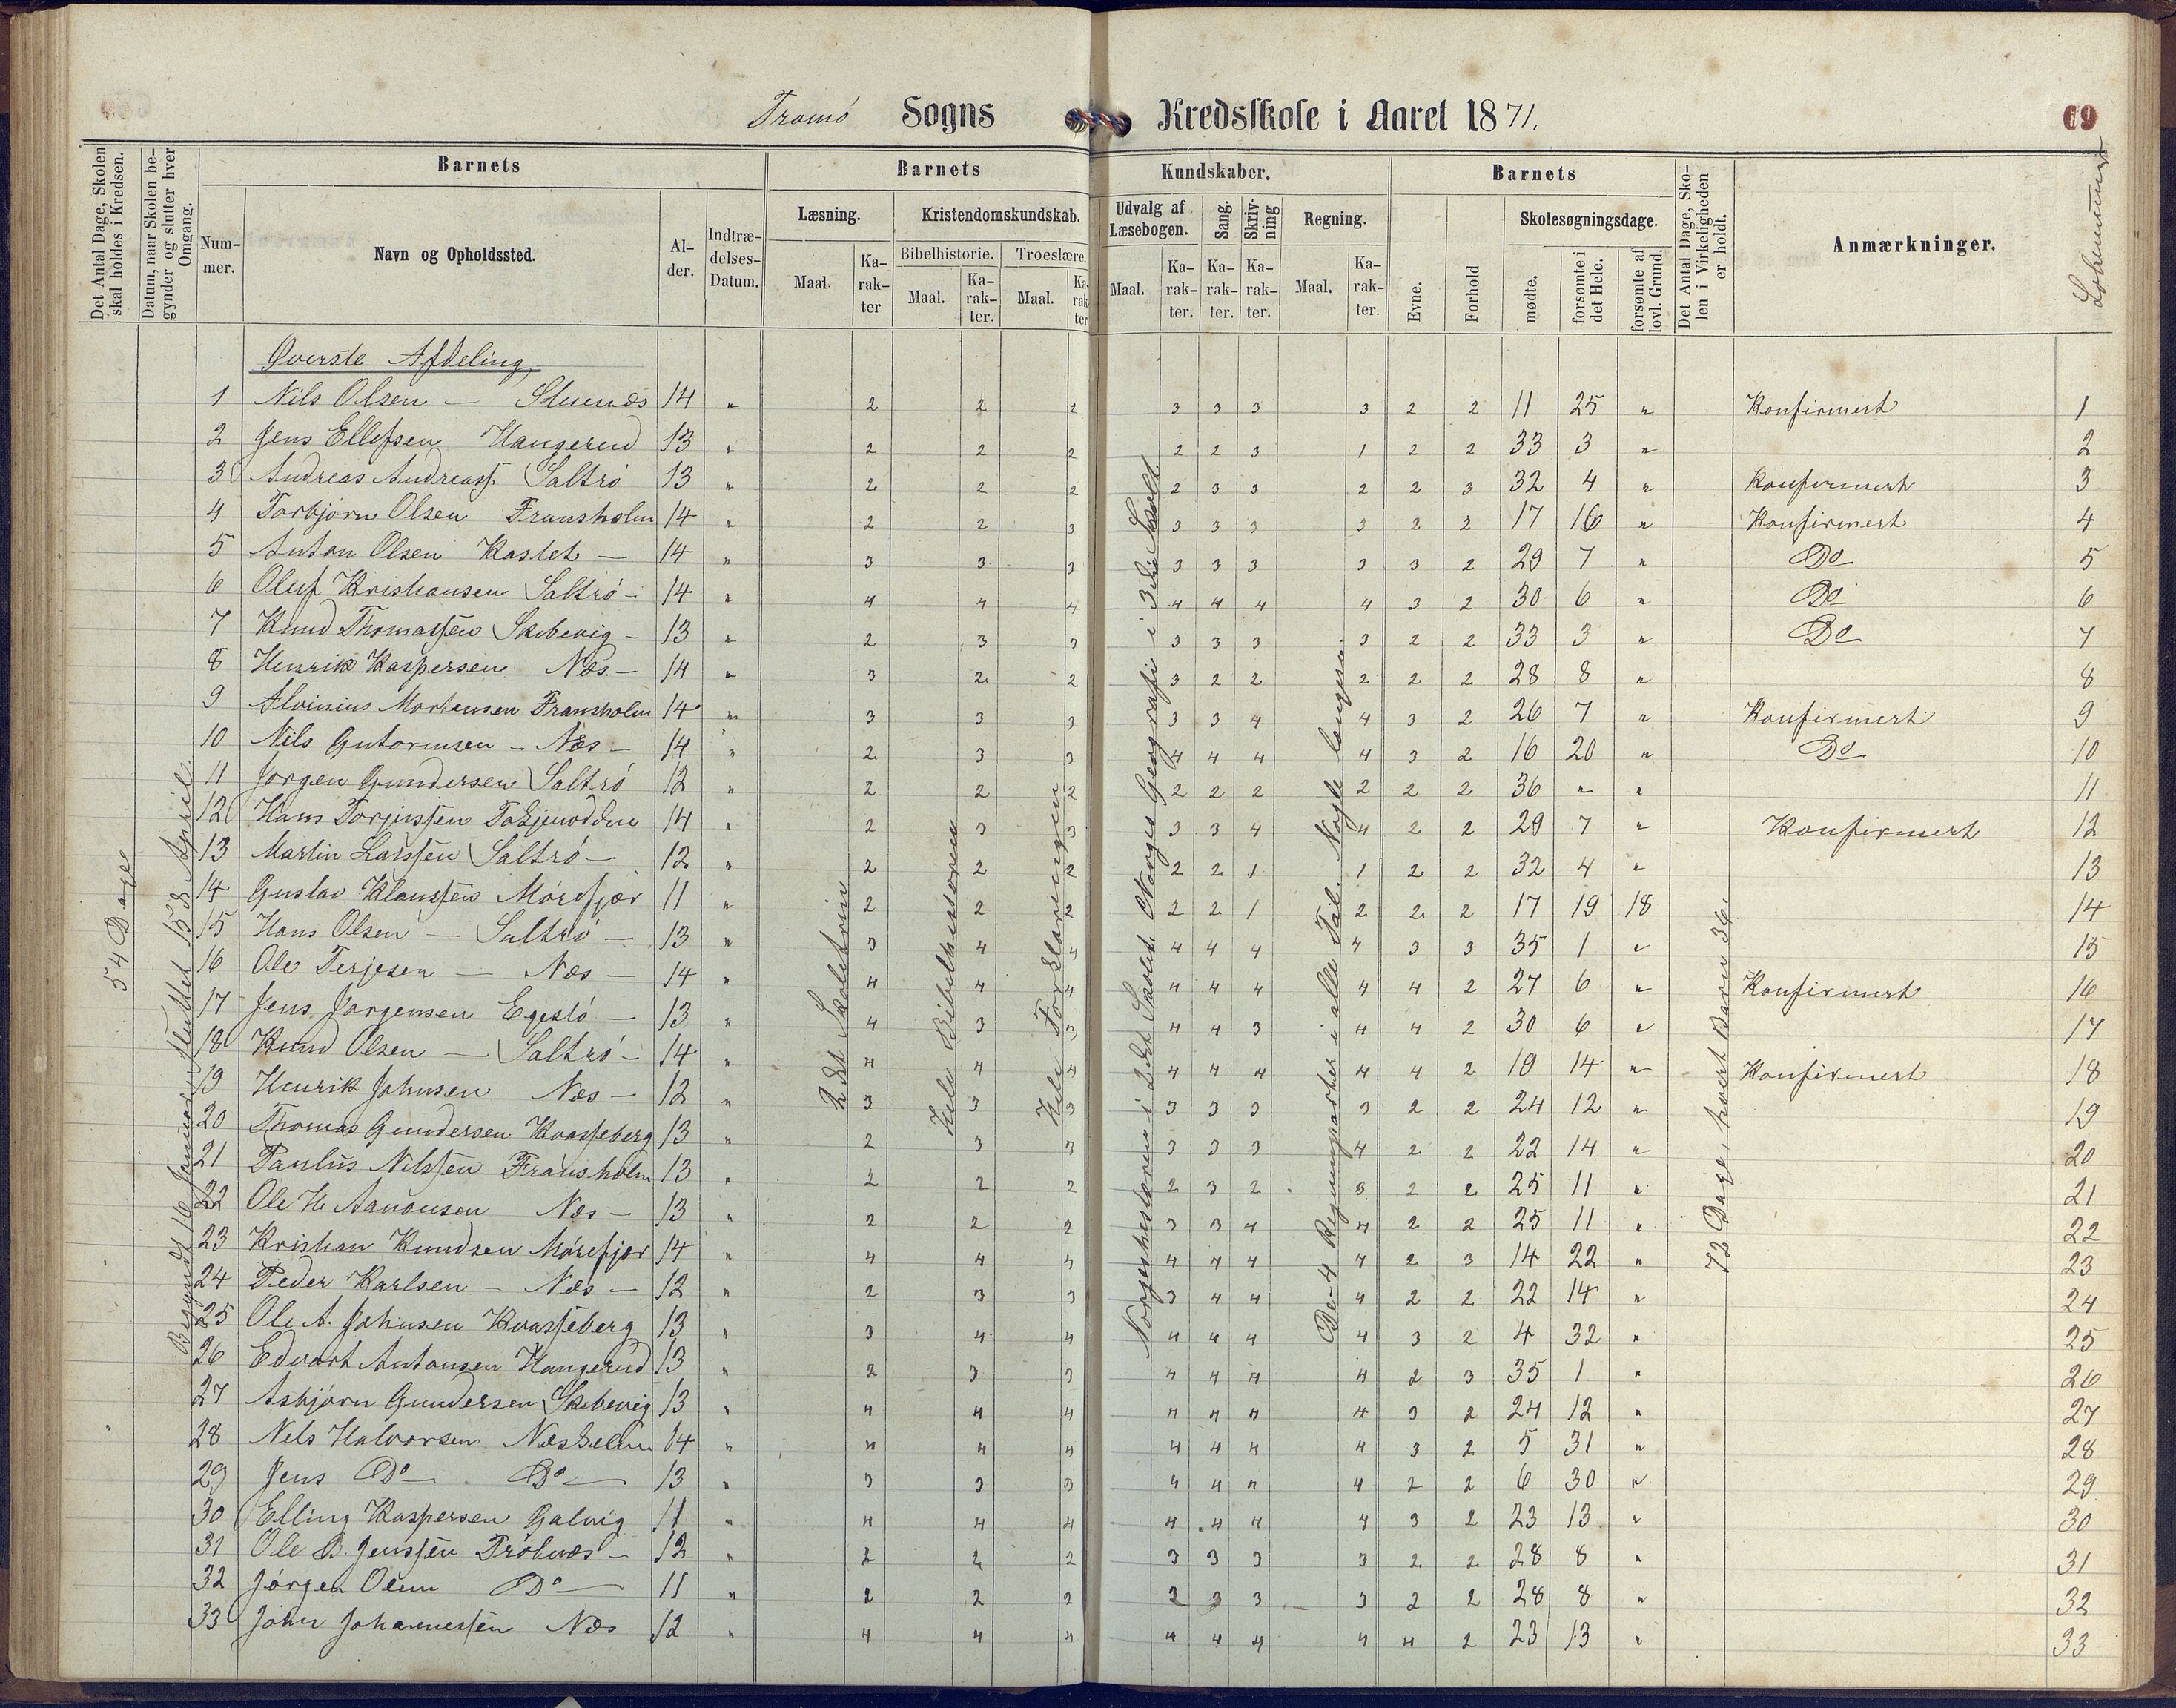 Tromö Sogns Kredsskole i Aaret 1871.
69
Det Antal Dage, Skolen skal holdes i Kredsen.
Datum, naar Skolen begynder og slutter hver Omgang.
Barnets
Nummer.
Navn og Opholdssted.
Alder.
Indtrædelses-Datum.
Barnets Kundskaber.
Læsning.
Maal
Karakter
Kristendomskundskab.
Bibelhistorie.
Maal.
Karakter.
Troeslære.
Maal.
Karakter.
Udvalg af Læsebogen.
Maal.
Karakter.
Sang.
Karakter.
Skrivning
Karakter.
Regning.
Maal.
Karakter.
Barnets
Evne.
Forhold
Skolesøgningsdage.
mødte.
forsømte i det Hele.
forsømte af lovl. Grund.
Det Antal Dage, Skolen i Virkeligheden er holdt.
Anmærkninger.
Löbenumer
54 Dage
Begyndt 16 Januar, sluttet 15de April
2det Skoletrin
Hele Bibelhistorien
Hele Forklaringen
Norgeshistorien i 2det Skolet. Norges Geografi i 3die Skolet.
De 4 Regningsarter i alle Tal. Nogle længere.
72 Dage, hvert Barn 36.
Överste Afdeling
1 Nils Olsen — Stuenæs 14 " 2 2 2 3 3 3 3 2 2 11 25 " Konfirmert 1
2 Jens Ellefsen Haugerud 13 " 2 2 2 2 2 3 1 2 2 33 3 " 2
3 Andreas Andreass. Saltrö 13 " 2 2 2 2 3 3 2 2 3 32 4 " Konfirmert 3
4 Torbjörn Olsen Fransholm 14 " 2 2 3 3 3 3 3 2 2 17 16 " Konfirmert 4
5 Anton Olsen Kastet — 14 " 3 3 3 3 3 3 3 3 2 29 7 " Do 5
6 Oluf Kristiansen Saltrö - 14 " 4 4 4 4 4 4 4 3 2 30 6 " Do 6
7 Knud Thomassen Skibevig - 13 " 2 3 3 3 3 3 3 2 2 33 3 " Do 7
8 Henrik Kaspersen Næs - 14 " 3 2 2 3 2 2 2 2 2 28 8 " 8
9 Alvinius Mortensen Fransholm 14 " 3 3 3 3 3 4 4 3 2 26 7 " Konfirmert 9
10 Nils Gutormsen - Næs - 14 " 2 3 3 4 4 4 4 3 2 16 20 " Do 10
11 Jörgen Gundersen Saltrö 12 " 2 2 2 2 2 2 2 2 2 36 " " 11
12 Hans Torjussen 14 " 2 3 3 3 3 4 4 2 2 29 7 " Konfirmert 12
13 Martin Larssen Saltrö - 12 " 2 2 2 2 2 1 1 2 2 32 4 " 13
14 Gustav Klaussen Mörefjær 11 " 2 2 2 2 2 1 2 2 2 17 19 18 14
15 Hans Olsen — Saltrö — 13 " 3 4 4 4 4 4 4 3 3 35 1 " 15
16 Ole Terjesen — Næs — 14 " 4 4 4 4 4 4 4 4 2 27 6 " Konfirmert 16
17 Jens Jörgensen 13 " 4 3 3 4 4 3 4 4 2 30 6 " 17
18 Knud Olsen — Saltrö - 14 " 4 4 4 4 4 4 4 4 2 19 14 " Konfirmert 18
19 Henrik Johnsen Næs - 12 " 3 3 3 3 3 3 3 2 2 24 12 " 19
20 Thomas Gundersen Kvasseberg 13 " 2 3 3 3 3 3 4 2 2 22 14 " 20
21 Paulus Nilssen Fransholm 13 " 2 2 2 2 3 2 3 2 2 25 11 " 21
22 Ole H. Aanonsen Næs - 13 " 2 2 2 3 3 4 4 2 2 25 11 " 22
23 Kristian Knudsen Mörefjær 14 " 4 4 4 4 4 4 4 2 3 14 22 " 23
24 Peder Karlsen - Næs - 12 " 2 3 3 3 4 4 4 2 2 22 14 " 24
25 Ole A. Johnsen Kvasseberg 13 " 3 4 4 4 4 4 4 3 2 4 32 " 25
26 Edvart Antonsen Haugerud 13 " 2 3 3 4 4 4 4 2 3 35 1 " 26
27 Asbjörn Gundersen Skibevig 13 " 4 4 4 4 4 4 4 3 2 24 12 " 27
28 Nils Halvorsen Næskilen 14 " 4 4 4 4 4 4 4 3 2 5 31 " 28
29 Jens Do — Do — 13 " 3 3 3 4 4 4 4 2 2 6 30 " 29
30 Elling Kaspersen Galvig 11 " 4 4 4 4 4 4 4 3 2 23 13 " 30
31 Ole B. Jenssen Tröbnæs - 12 " 2 2 2 3 3 3 3 2 2 28 8 " 31
32 Jörgen Olsen Do — 11 " 2 2 2 3 3 3 3 2 2 28 8 " 32
33 John Johannessen Næs 12 " 4 4 4 4 4 4 4 4 2 23 13 " 33